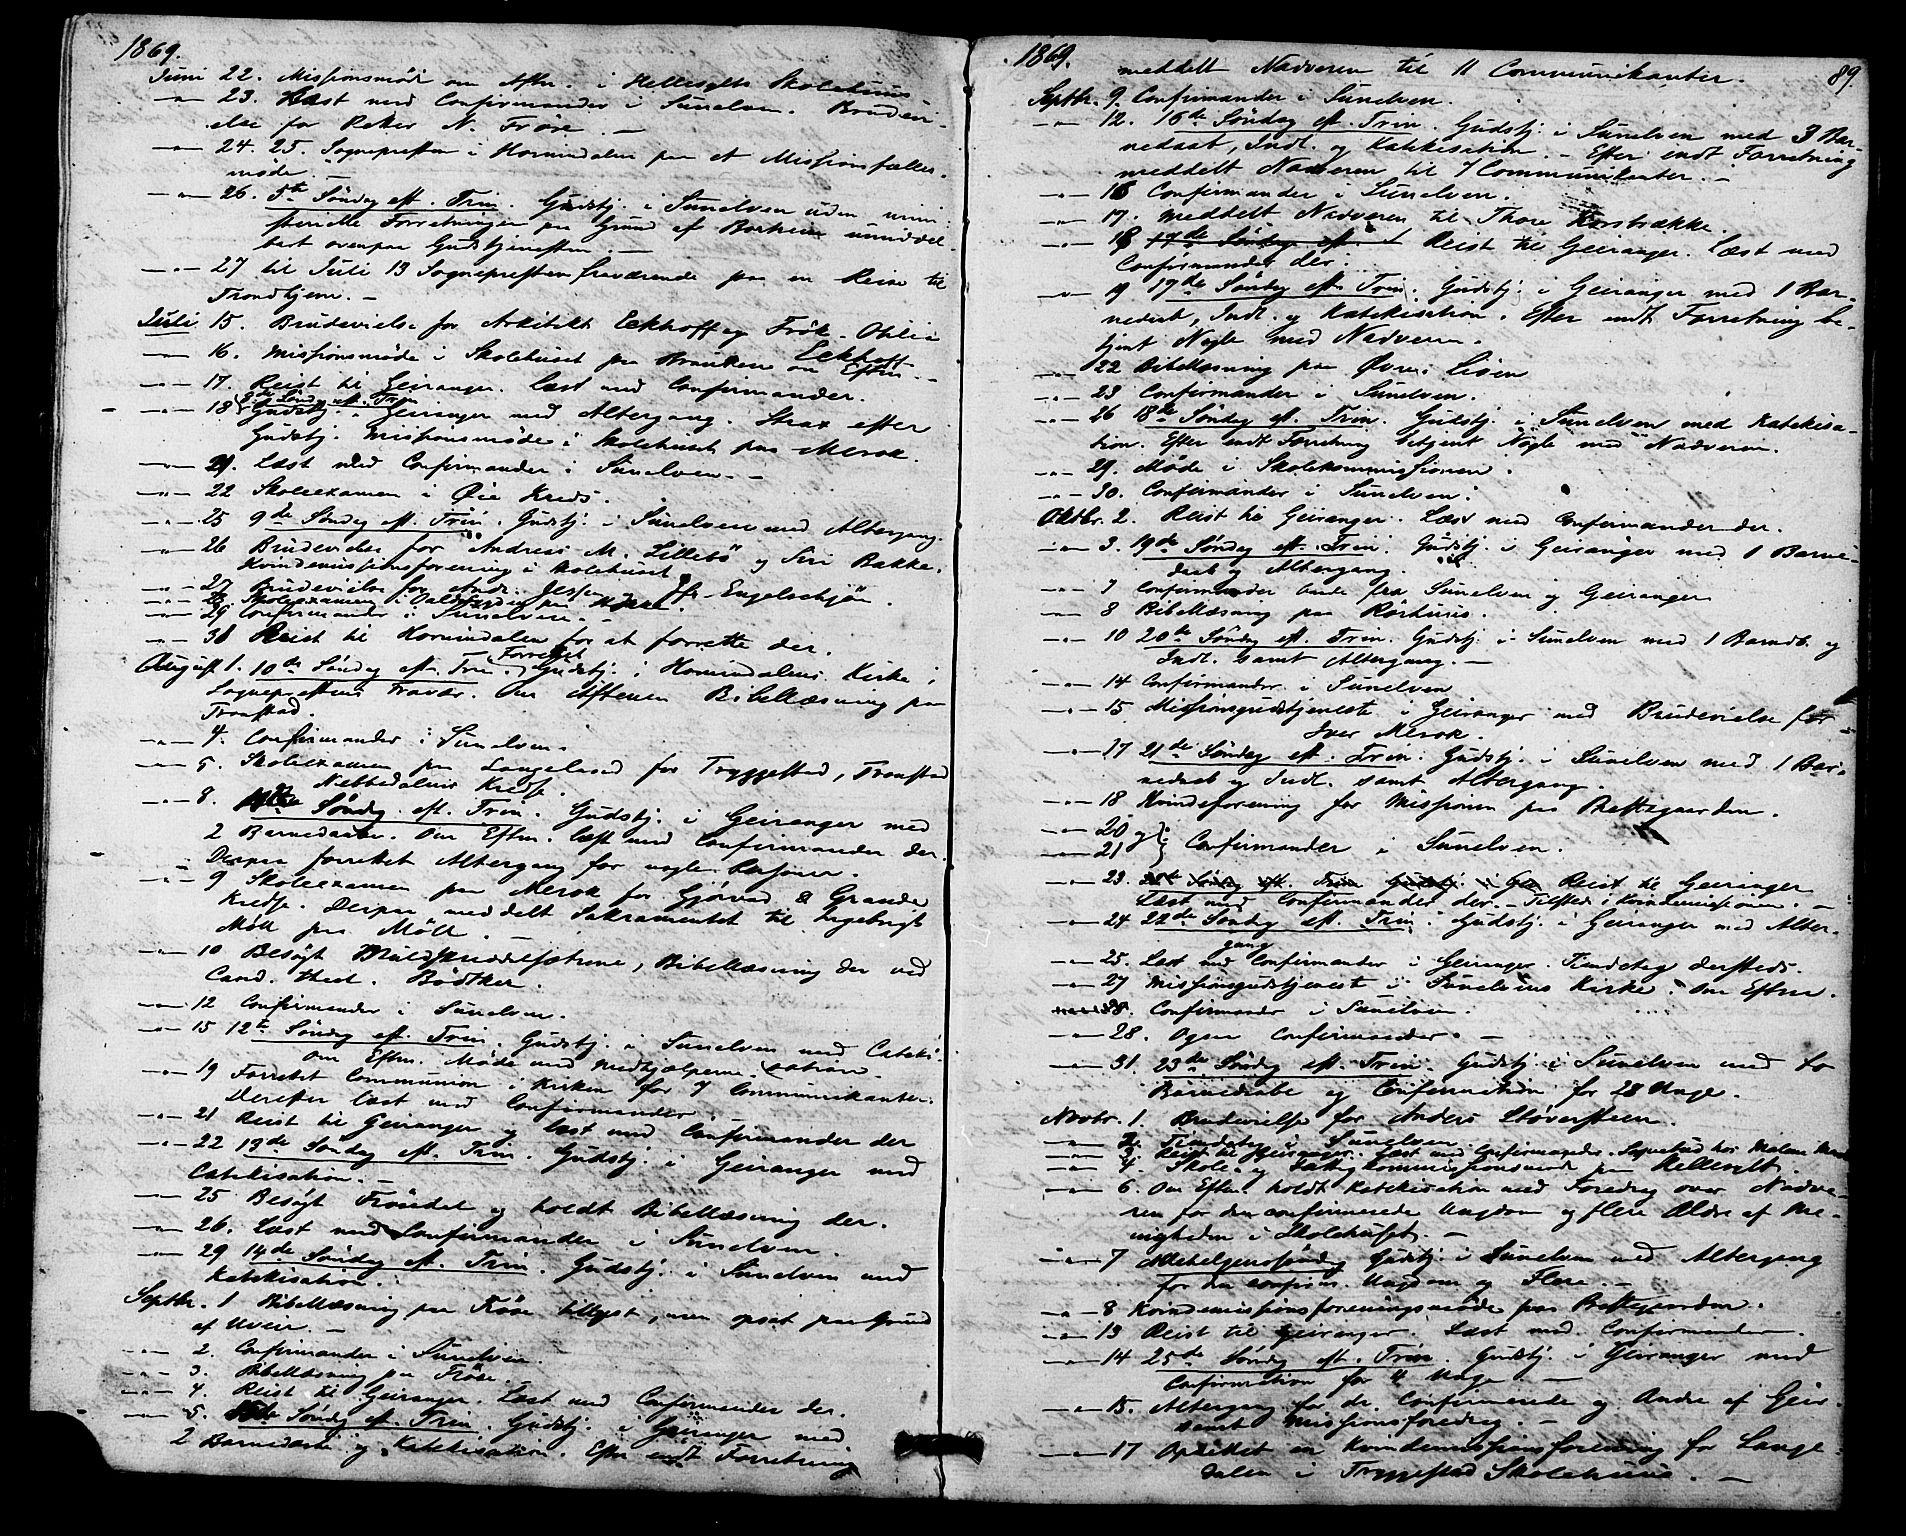 1869.
Juni 22. Missionsmøde om Aftn. i Hellesylts Skolehuus
-"- 23. Læst med Confirmander i Sunelven. Brudevi-
else for Peder N. Frøse. -
-"- 24. 25. Sognepresten i Hornindalen paa et Missionsfælles-
møde. -
-"- 26. 5te Søndag eft. Trin. Gudstj. i Sunelven uden mini-
sterielle Forretninger paa Grund af umiddel-
bart ovenpaa Gudstjenesten. -
-"- 27 til Juli 13 Sognepresten fraværende paa en Reise til
Trondhjem. -
Juli 15. Brudevielse for Arkitekt Eckhoff og Frøk. Otilia
Eckhoff.
-"- 16. Missionsmøde i Skolehuset paa om Eftm. -
-"- 17. Reist til Geiranger. Læst med Confirmander.
8de Søndag eft. Trin
-"- 18 Gudstj. i Geiranger med Altergang. Strax efter
Gudstj. Missionsmøde i Skolehuset paa Merok.
-"- 21. Læst med Confirmander i Sunelven. -
-"- 22 Skoleexamen i Øie Kreds.
-"- 25 9de Søndag eft. Trin. Gudstj. i Sunelven med Altergang.
-"- 26 Brudevielse for Andreas M. Lillebö og Siri Bakke.
Kvindemissionsforening i Skolehuset
-"- 27 Brudevielse for Andr. og Engelschjøn.
-"- 28 Skoleexamen i
-"- 29 Confirmander i Sunelven. -
-"- 30 Reist til Hornindalen for at forrette der.
August 1. 10de Søndag eft. Trin. Forrettet Gudstj. i Hornindalens Kirke i
Sogneprestens Fravær. Om Aftenen Bibellæsning paa
Tronstad.
-"- 4. Confirmander i Sunelven.
-"- 5. Skoleexamen paa Langeland for Tryggestad, Tronstad
og Nebbedalens Kredse.
-"- 8. 11te Søndag eft. Trin. Gudstj. i Geiranger med
2 Barnedaabe. Om Eftm. læst med Confirmander der.
Derpaa forrettet Altergang for nogle Personer.
-"- 9 Skoleexamen paa Merok for Gjørvad & Grande
Kredse. Derpaa meddelt Sakramentet til Ingebrigt
Möll paa Möll. -
-"- 10 Besøgt , Bibellæsning der ved
Cand. theol. Bödtker.
-"- 12 Confirmander i Sunelven.
-"- 15 12te Søndag eft. Trin. Gudstj. i Sunelven med Cateki-
sation. om Eftm. Møde med Medhjælperne.
-"- 19 Forrettet Communion i Kirken for 7 Communikanter.
Derefter læst med Confirmander.
-"- 21 Reist til Geiranger og læst med Confirmander der
-"- 22 13de Søndag eft. Trin. Gudstj. i Geiranger med
Catekisation. -
-"- 25 Besøgt Frøndal og holdt Bibellæsning der.
-"- 26. Læst med Confirmander i Sunelven.
-"- 29 14de Søndag eft. Trin. Gudstj. i Sunelven med
Katekisation.
Septbr. 1 Bibellæsning paa Frøse tillyst, men opsat paa Grund
af Uveir. -
-"- 2. Confirmander i Sunelven.
-"- 3. Bibellæsning paa Frøse. -
-"- 4. Reist til Geiranger. Læst med Confirmander der.
-"- 5. 15de Søndag eft. Trin. Gudstj. i Geiranger med
2 Barnedaabe og Katekisation. Efter endt Forretning
1869. 89.
meddelt Nadveren til 11 Communikanter.
Septbr. 9. Confirmander i Sunelven.
-"- 12. 16de Søndag eft. Trin. Gudstj. i Sunelven med 3 Bar-
nedaab, Indl. og Katekisation. - Efter endt Forretning
meddelt Nadveren til 7 Communikanter. -
-"- 16 Confirmander i Sunelven.
-"- 17. Meddelt Nadveren til Thore Korsbrække.
-"- 18 17de Søndag eft. Reist til Geiranger. Læst med
Confirmander der.
-"- 19 17de Søndag eft. Trin. Gudstj. i Geiranger med 1 Bar-
nedaab, Indl. og Katekisation. Efter endt Forretning be-
tjent Nogle med Nadveren.
-"- 22 Bibellæsning paa Øvre Lien
-"- 23 Confirmander i Sunelven.
-"- 26 18de Søndag eft. Trin. Gudstj. i Sunelven med Katekisa-
tion. Efter endt Forretning betjent Nogle med Nadveren.
-"- 29. Møde i Skolekommissionen.
-"- 30. Confirmander i Sunelven.
Oktbr. 2. Reist til Geiranger. Læst med Confirmander der.
-"- 3. 19de Søndag eft. Trin. Gudstj. i Geiranger med 1 Barne-
daab og Altergang.
-"- 7 Confirmander baade fra Sunelven og Geiranger
-"- 8 Bibellæsning paa Rørhuus.
-"- 10 20de Søndag eft. Trin. Gudstj. i Sunelven med 1 Barndb. og
Indl. samt Altergang. -
-"- 14 Confirmander i Sunelven
-"- 15 Missionsgudstjeneste i Geiranger med Brudevielse for
Iver Merok.
-"- 17 21de Søndag eft. Trin. Gudstj. i Sunelven med 1 Bar-
nedaab og Indl. samt Altergang.
-"- 18 Kvindeforening for Missionen paa Prestegaarden.
-"- 20 og
-"- 21 } Confirmander i Sunelven.
-"- 23. Søndag eft. Trin Gudstj. i Gei Reist til Geiranger
Læst med Confirmander der. - Tilsted i Kvindemissionen. -
-"- 24 22de Søndag eft. Trin. Gudstj. i Geiranger med Alter-
gang
-"- 25. Læst med Confirmander i Geiranger. Tiendetag dersteds.
-"- 27 Missionsgudstjeneste i Sunelvens Kirke. om Eftm.
-"- 28. Confirmander i Sunelven.
-"- 28. Ogsaa Confirmander. -
-"- 31. 23de Søndag eft. Trin. Gudstj. i Sunelven med to
Barnedaabe og Confirmation for 28 Unge.
Novbr. 1. Brudevielse for Anders Støversteen.
-"- 2. Tiendetag i Sunelven
-"- 3. Reist til Geiranger. Læst med Confirmander. Sognebud hos
-"- 4. Skole- og Fattigkommissionsmøde paa Hellesylt.
-"- 6. Om Eftm. holdt Katekisation med Foredrag over Nadve-
ren for den confirmerede Ungdom og flere Ældre af Me-
nigheden i Skolehuset. -
-"- 7 Allehelgenssøndag Gudstj. i Sunelven med Altergang
for den confirm. Ungdom og Flere. -
-"- 8 Kvindemissionsforeningsmøde paa Prestegaarden.
-"- 13 Reist til Geiranger. Læst med Confirmander.
-"- 14 25de Søndag eft. Trin. Gudstj. i Geiranger med
Confirmation for 11 Unge -
-"- 15. Altergang for de Confirmerede og Andre af Geir.
samt Missionsforedrag. -
-"- 17 Oprettet en Kvindemissionsforening for Lange-
dalen i Tryggestad Skolehuus. -